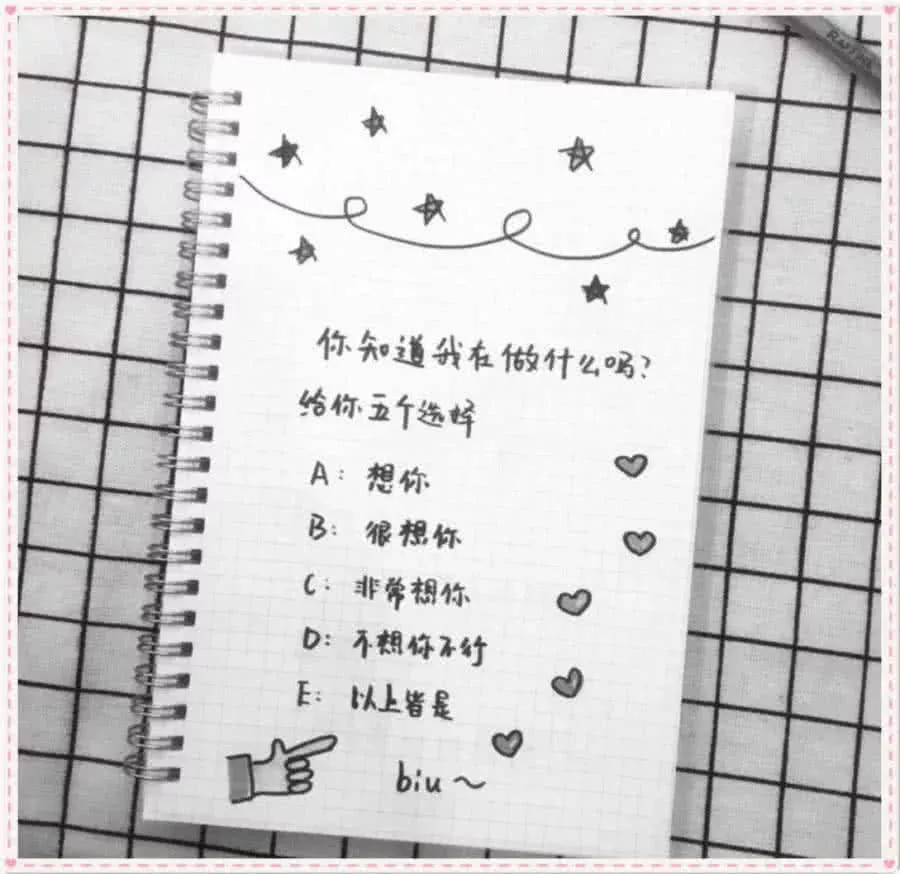 你知道我在做什么吗？
给你五个选择
A：想你
B：很想你
C：非常想你
D：不想你不行
E：以上皆是
biu～